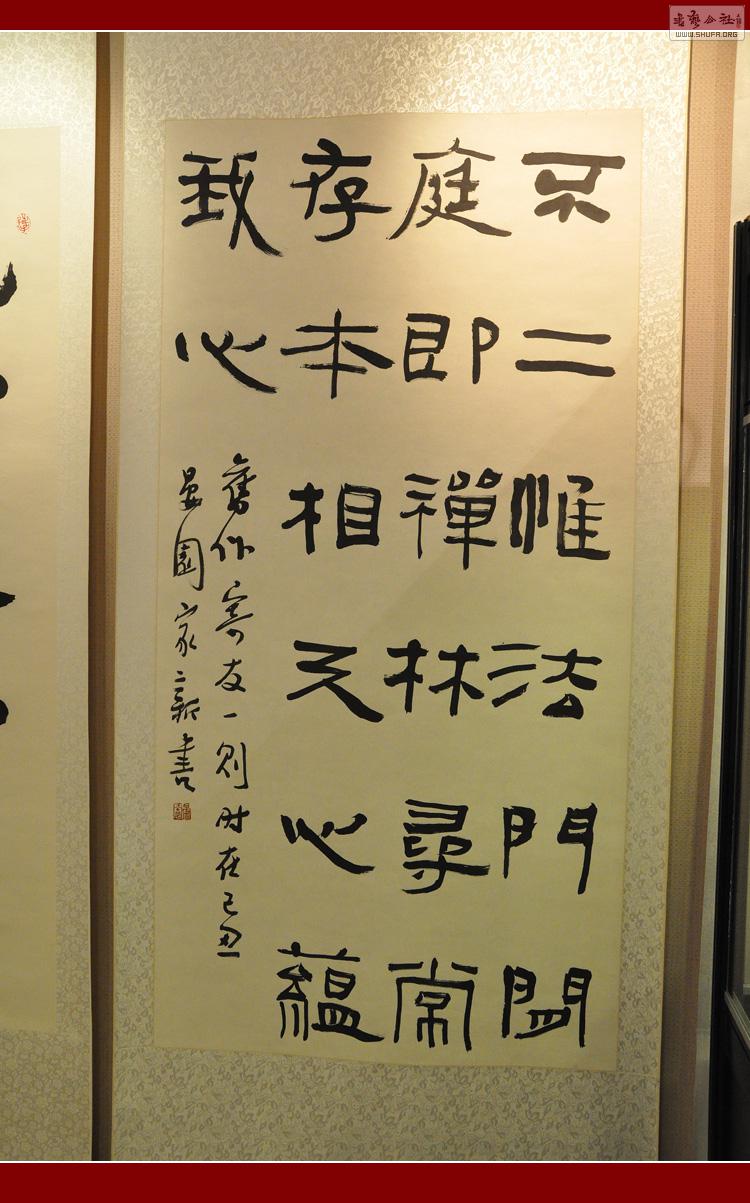 書藝公社
WWW.SHUFA.ORG
不二惟法門閒
庭即禪林尋常
存本相天心蘊
我心
舊作寄友一則时在己丑
晏園家新書